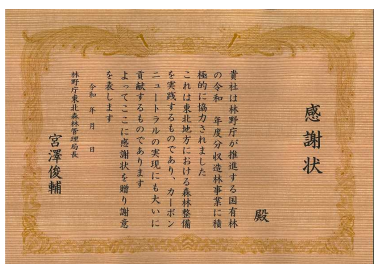 感謝状
殿
貴社は林野庁が推進する国有林
の令和 年度分収造林事業に積
極的に協力されました
これは東北地方における森林整備
を実践するものであり、カーボン
ニュートラルの実現にも大いに
貢献するものであります
よってここに感謝状を贈り謝意
を表します
令和 年 月 日
林野庁東北森林管理局長
宮澤俊輔